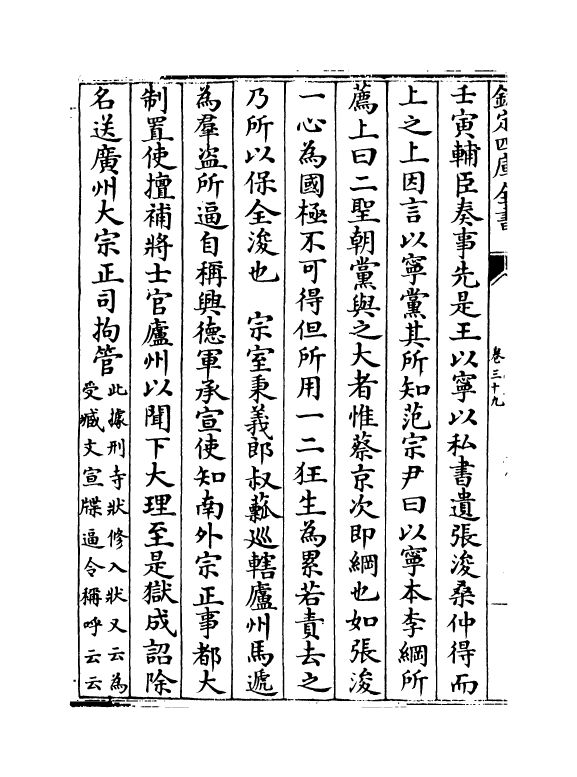 欽定四庫全書
卷三十九
壬寅輔臣奏事先是王以寧以私書遺張浚桑仲得而
上之上因言以寧黨其所知范宗尹曰以寧本李綱所
薦上曰二聖朝黨與之大者惟蔡京次即綱也如張浚
一心為國極不可得但所用一二狂生為累若責去之
乃所以保全浚也 宗室秉義郎叔蘵巡轄廬州馬遞
為羣盜所逼自稱興德軍承宣使知南外宗正事都大
制置使擅補將士官廬州以聞下大理至是獄成詔除
名送廣州大宗正司拘管
此據刑寺狀修入狀又云為
受贓文宣牒逼令稱呼云云